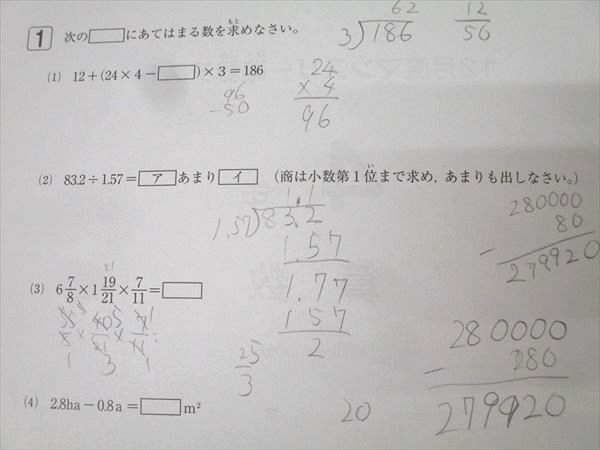 1 次の□にあてはまる数を求めなさい。
(1) 12+(24×4−□)×3=186
(2) 83.2÷1.57=ア あまり イ (商は小数第1位まで求め、あまりも出しなさい。)
(3) 6 7/8×1 19/21×7/11=□
(4) 2.8ha−0.8a=□m²
62
3)186
12
50
24
×4
96
96
−50
1.1
1.57)83.2
1.57
1.77
157
2
280000
80
−
279920
25
3
20
280000
−
279920